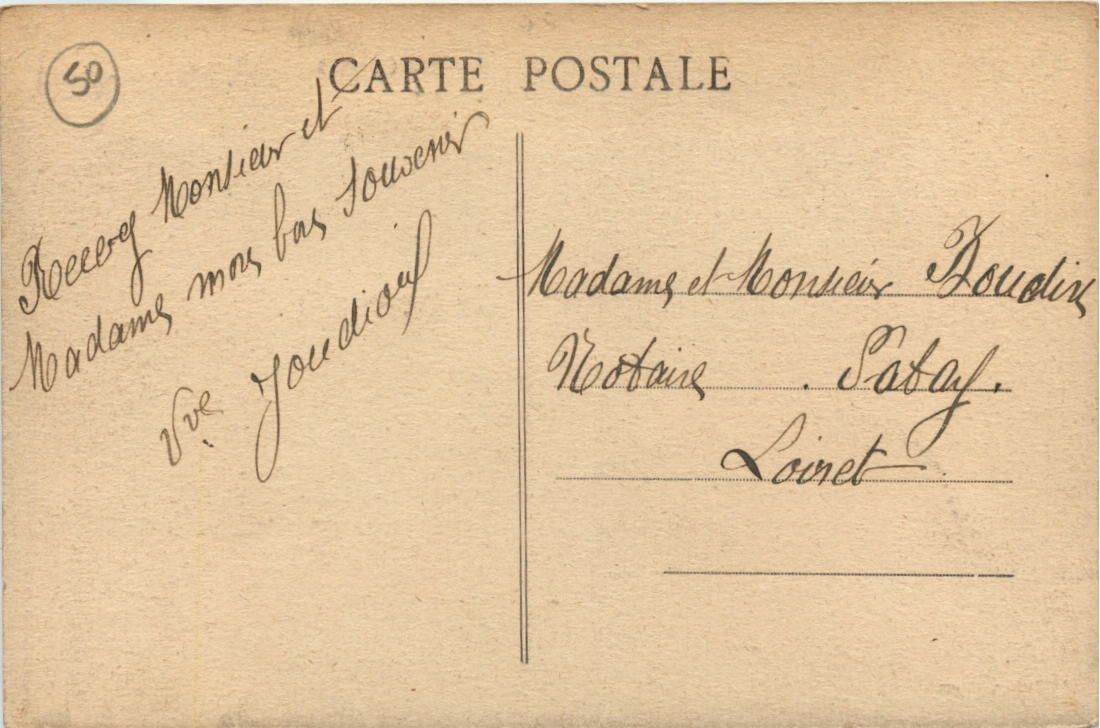 50
CARTE POSTALE
Recevez Monsieur et
Madame mon bon souvenir
Vve
Madame et Monsieur
Notaire . Patay.
Loiret